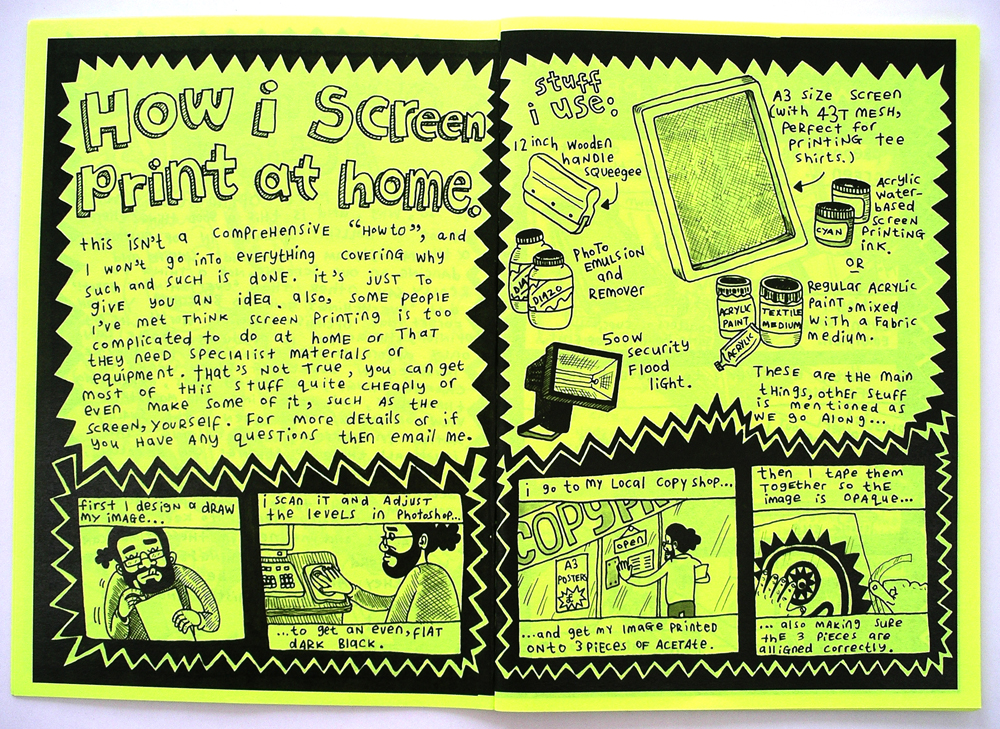 How i Screen
print at home.
this isn't a comprehensive "How to", and
I won't go into everything covering why
such and such is done. it's just to
give you an idea. also, some people
i've met think screen printing is too
complicated to do at home or that
they need specialist materials or
equipment. that's not true, you can get
most of this stuff quite cheaply or
even make some of it, such as the
screen, yourself. For more details or if
you have any questions then email me.
first I design & draw
my image...
i scan it and adjust
the levels in Photoshop...
...to get an even, flat
dark black.
stuff
i use:
12 inch wooden
handle
squeegee
A3 size screen
(with 43T mesh,
perfect for
printing tee
shirts.)
Acrylic
water-
based
screen
printing
ink.
CYAN
OR
Photo
emulsion
and
remover
DIAZO
Regular acrylic
paint, mixed
with a fabric
medium.
ACRYLIC
PAINT
TEXTILE
MEDIUM
ACRYLIC
500w
security
flood
light.
These are the main
things, other stuff
is mentioned as
we go along...
i go to my local copy shop...
COPY
OPEN
A3
POSTERS
...and get my image printed
onto 3 pieces of acetate.
then I tape them
together so the
image is opaque...
...also making sure
the 3 pieces are
alligned correctly.